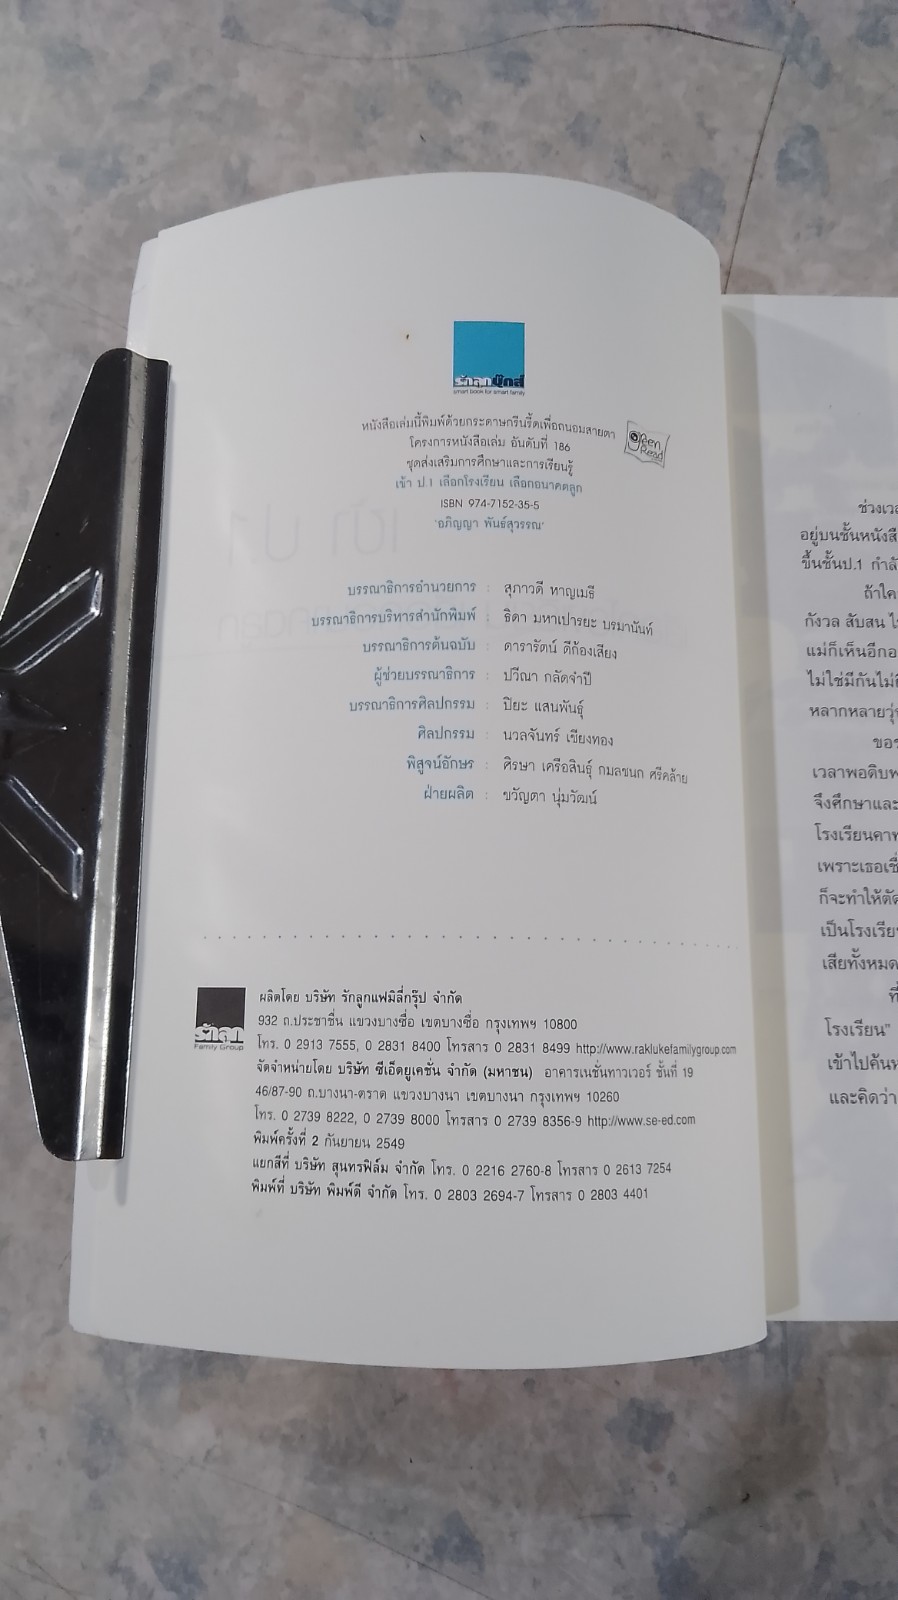 รักลูกบุ๊กส์
smart book for smart family
หนังสือเล่มนี้พิมพ์ด้วยกระดาษกรีนรี้ดเพื่อถนอมสายตา
green Read
โครงการหนังสือเล่ม อันดับที่ 186
ชุดส่งเสริมการศึกษาและการเรียนรู้
เข้า ป.1 เลือกโรงเรียน เลือกอนาคตลูก
ISBN 974-7152-35-5
"อภิญญา พันธ์สุวรรณ"
บรรณาธิการอำนวยการ : สุภาวดี หาญเมธี
บรรณาธิการบริหารสำนักพิมพ์ : ธิดา มหาเปารยะ บรมานันท์
บรรณาธิการต้นฉบับ : ดารารัตน์ ดีก้องเสียง
ผู้ช่วยบรรณาธิการ : ปวีณา กลัดจำปี
บรรณาธิการศิลปกรรม : ปิยะ แสนพันธุ์
ศิลปกรรม : นวลจันทร์ เขียงทอง
พิสูจน์อักษร : ศิรษา เครือสินธุ์ กมลชนก ศรีคล้าย
ฝ่ายผลิต : ขวัญตา นุ่มวัฒน์
รักลูก
Family Group
ผลิตโดย บริษัท รักลูกแฟมิลี่กรุ๊ป จำกัด
932 ถ.ประชาชื่น แขวงบางซื่อ เขตบางซื่อ กรุงเทพฯ 10800
โทร. 0 2913 7555, 0 2831 8400 โทรสาร 0 2831 8499 http://www.raklukefamilygroup.com
จัดจำหน่ายโดย บริษัท ซีเอ็ดยูเคชั่น จำกัด (มหาชน) อาคารเนชั่นทาวเวอร์ ชั้นที่ 19
46/87-90 ถ.บางนา-ตราด แขวงบางนา เขตบางนา กรุงเทพฯ 10260
โทร. 0 2739 8222, 0 2739 8000 โทรสาร 0 2739 8356-9 http://www.se-ed.com
พิมพ์ครั้งที่ 2 กันยายน 2549
แยกสีที่ บริษัท สุนทรฟิล์ม จำกัด โทร. 0 2216 2760-8 โทรสาร 0 2613 7254
พิมพ์ที่ บริษัท พิมพ์ดี จำกัด โทร. 0 2803 2694-7 โทรสาร 0 2803 4401
ช่วงเวล
อยู่บนชั้นหนังสื
ขึ้นชั้นป.1 กำลั
ถ้าใค
กังวล สับสน ไ
แม่ก็เห็นอีกอ
ไม่ใช่มีกันไม่
หลากหลายวุ่
ขอข
เวลาพอดิบพ
จึงศึกษาและ
โรงเรียนคาท
เพราะเธอเชื่
ก็จะทำให้ตัด
เป็นโรงเรีย
เสียทั้งหมด
ที่
โรงเรียน"
เข้าไปค้นห
และคิดว่า